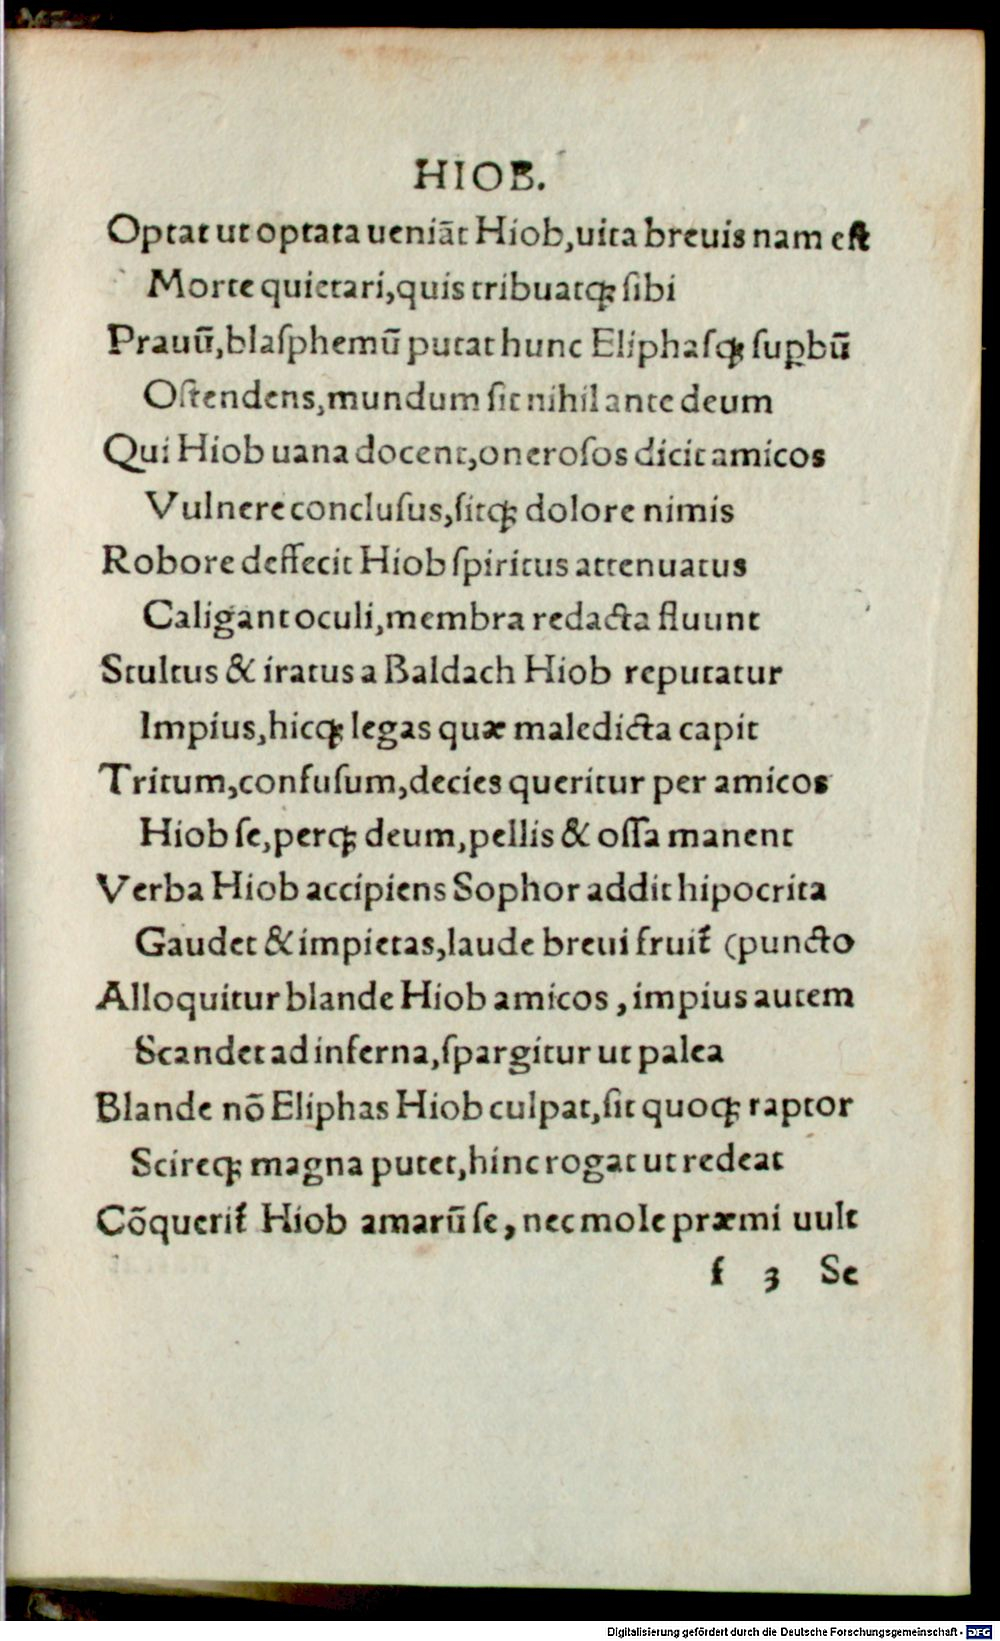 HIOB.
Optat ut optata ueniãt Hiob,uita breuis nam est
Morte quietari,quis tribuatqꝫ ſibi
Prauũ,blaſphemũ putat hunc Eliphaſqꝫ ſuꝑbũ
Oſtendens,mundum ſit nihil ante deum
Qui Hiob uana docent,oneroſos dicit amicos
Vulnere concluſus,ſitqꝫ dolore nimis
Robore deffecit Hiob ſpiritus attenuatus
Caligant oculi,membra redacta fluunt
Stultus & iratus a Baldach Hiob reputatur
Impius,hicqꝫ legas quæ maledicta capit
Tritum,confuſum,decies queritur per amicos
Hiob ſe,perqꝫ deum,pellis & oſſa manent
Verba Hiob accipiens Sophor addit hipocrita
Gaudet & impietas,laude breui fruit᷑ (puncto
Alloquitur blande Hiob amicos , impius autem
Scandet ad inferna,ſpargitur ut palea
Blande nõ Eliphas Hiob culpat,ſit quoqꝫ raptor
Scireqꝫ magna putet,hinc rogat ut redeat
Cõquerit᷑ Hiob amarũ ſe, nec mole præmi uult
f 3 Se
Digitalisierung gefördert durch die Deutsche Forschungsgemeinschaft - DFG